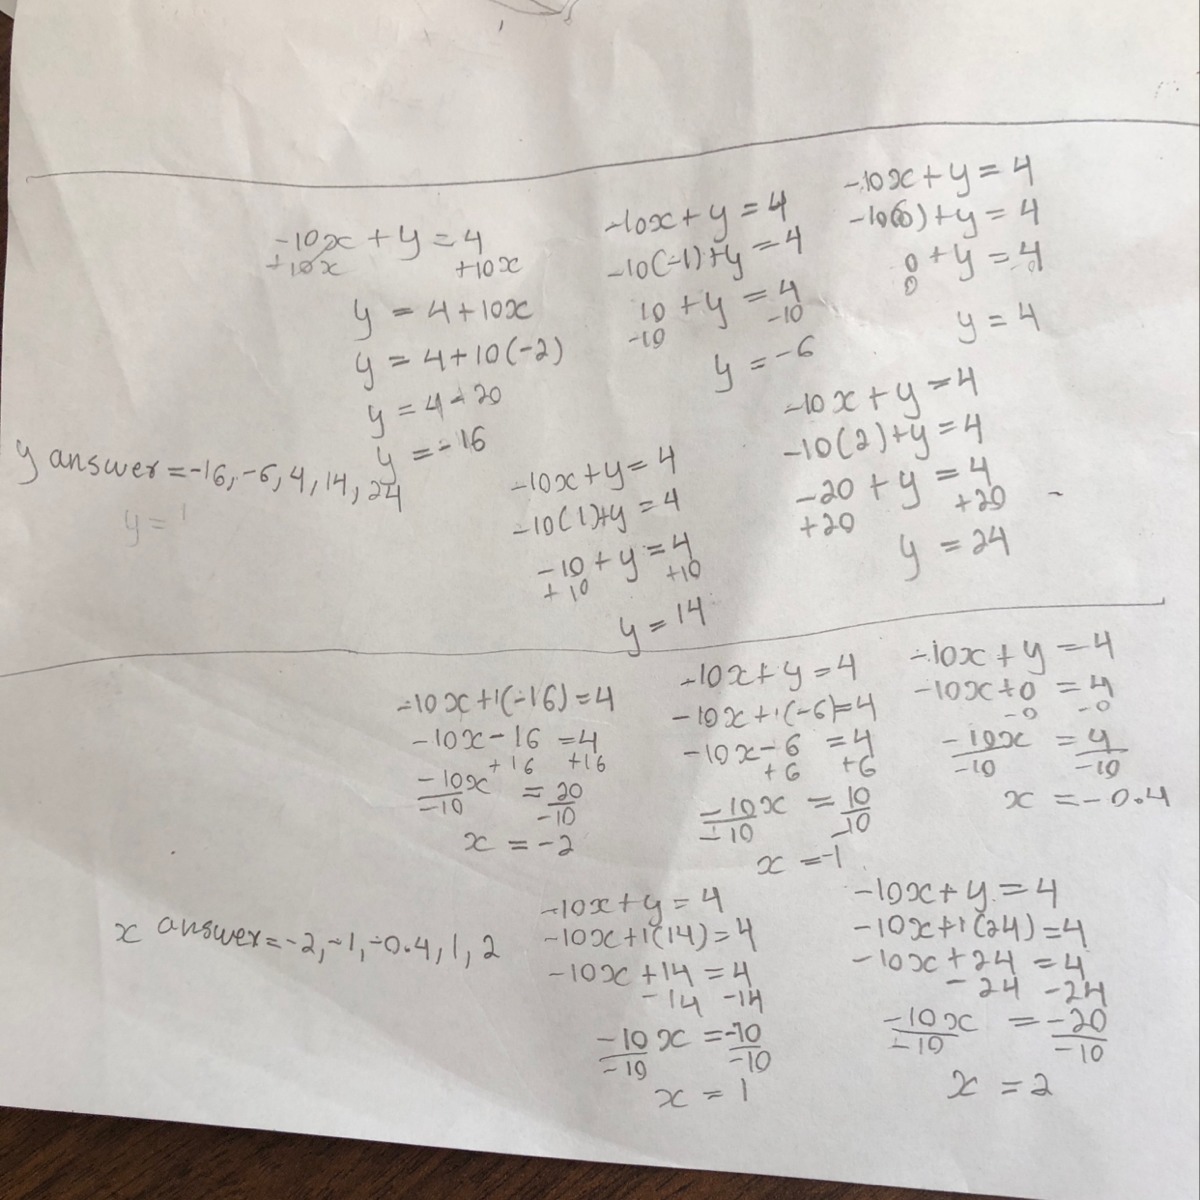 -10x + y = 4
+10x +10x
y = 4 + 10x
y = 4 + 10(-2)
y = 4 - 20
y = -16
-10x + y = 4
-10(-1) + y = 4
10 + y = 4
-10 -10
y = -6
-10x + y = 4
-10(0) + y = 4
0 + y = 4
0 -0
y = 4
y answer = -16, -6, 4, 14, 24
y = 1
-10x + y = 4
-10(1) + y = 4
-10 + y = 4
+10 +10
y = 14
-10x + y = 4
-10(2) + y = 4
-20 + y = 4
+20 +20
y = 24
-10x + 1(-16) = 4
-10x - 16 = 4
+16 +16
-10x = 20
-10 -10
x = -2
-10x + y = 4
-10x + 1(-6) = 4
-10x - 6 = 4
+6 +6
-10x = 10
-10 -10
x = -1
-10x + y = 4
-10x + 0 = 4
-0 -0
-10x = 4
-10 -10
x = -0.4
x answer = -2, -1, -0.4, 1, 2
-10x + y = 4
-10x + 1(14) = 4
-10x + 14 = 4
-14 -14
-10x = -10
-10 -10
x = 1
-10x + y = 4
-10x + 1(24) = 4
-10x + 24 = 4
-24 -24
-10x = -20
-10 -10
x = 2